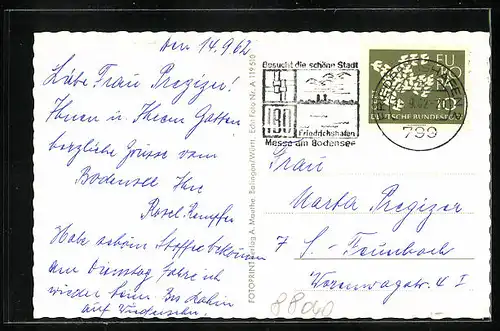 den 14.9.62
Liebe Frau Pregizer!
Ihnen u. Ihrem Gatten
herzliche Grüsse vom
Bodensee Ihre
Rosel Kempfer
Habe schöne Stoffe bekommen
am Dienstag fahre ich
wieder heim. Bis dahin
auf Wiedersehn.
FOTOPRINT Verlag A. Moethe, Echt Foto Nr. A 119 510
Besucht die schöne Stadt
IBO
Friedrichshafen
Messe am Bodensee
EU
RO
DEUTSCHE BUNDESPOST
799
Frau
Marta Pregizer
7 S. - Feuerbach
4 I
8800